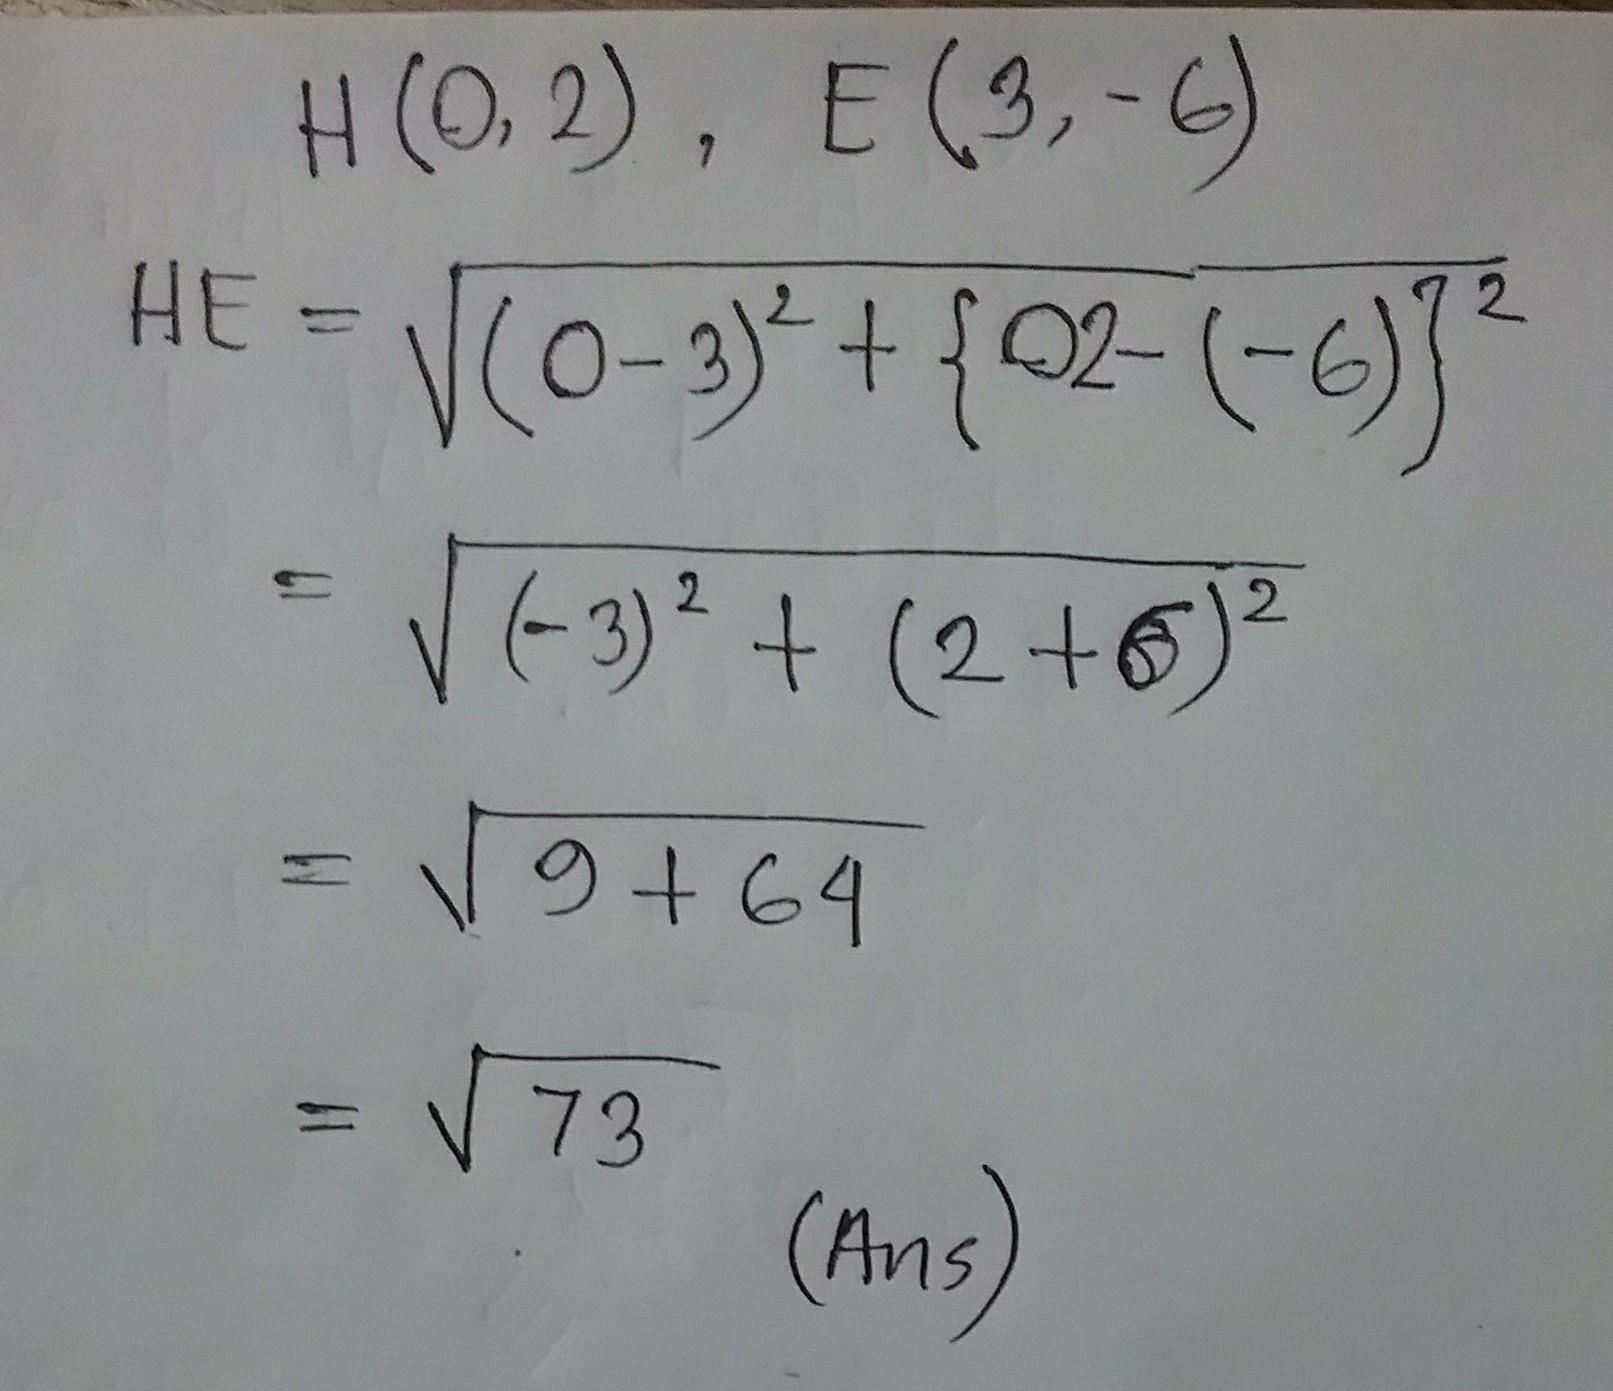 H(0,2), E(3,-6)
HE = √(0-3)² + {02-(-6)}²
= √(-3)² + (2+6)²
= √9+64
= √73
(Ans)